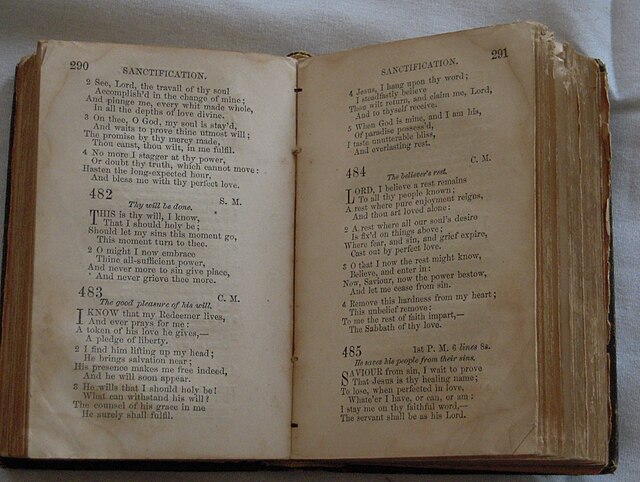 290
SANCTIFICATION.
2 See, Lord, the travail of thy soul
Accomplish'd in the change of mine;
And plunge me, every whit made whole,
In all the depths of love divine.
3 On thee, O God, my soul is stay'd,
And waits to prove thine utmost will;
The promise by thy mercy made,
Thou canst, thou wilt, in me fulfil.
4 No more I stagger at thy power,
Or doubt thy truth, which cannot move:
Hasten the long-expected hour,
And bless me with thy perfect love.
482
S. M.
Thy will be done.
THIS is thy will, I know,
That I should holy be;
Should let my sins this moment go,
This moment turn to thee.
2 O might I now embrace
Thine all-sufficient power,
And never more to sin give place,
And never grieve thee more.
483
C. M.
The good pleasure of his will.
I KNOW that my Redeemer lives,
And ever prays for me:
A token of his love he gives,—
A pledge of liberty.
2 I find him lifting up my head;
He brings salvation near;
His presence makes me free indeed,
And he will soon appear.
3 He wills that I should holy be!
What can withstand his will?
The counsel of his grace in me
He surely shall fulfil.
291
SANCTIFICATION.
4 Jesus, I hang upon thy word;
I steadfastly believe
Thou wilt return, and claim me, Lord,
And to thyself receive.
5 When God is mine, and I am his,
Of paradise possess'd,
I taste unutterable bliss,
And everlasting rest.
484
C. M.
The believer's rest.
LORD, I believe a rest remains
To all thy people known;
A rest where pure enjoyment reigns,
And thou art loved alone:
2 A rest where all our soul's desire
Is fix'd on things above;
Where fear, and sin, and grief expire,
Cast out by perfect love.
3 O that I now the rest might know,
Believe, and enter in:
Now, Saviour, now the power bestow,
And let me cease from sin.
4 Remove this hardness from my heart;
This unbelief remove:
To me the rest of faith impart,—
The Sabbath of thy love.
485
1st P. M. 6 lines 8s.
He saves his people from their sins.
SAVIOUR from sin, I wait to prove
That Jesus is thy healing name;
To lose, when perfected in love,
Whate'er I have, or can, or am:
I stay me on thy faithful word,—
The servant shall be as his Lord.